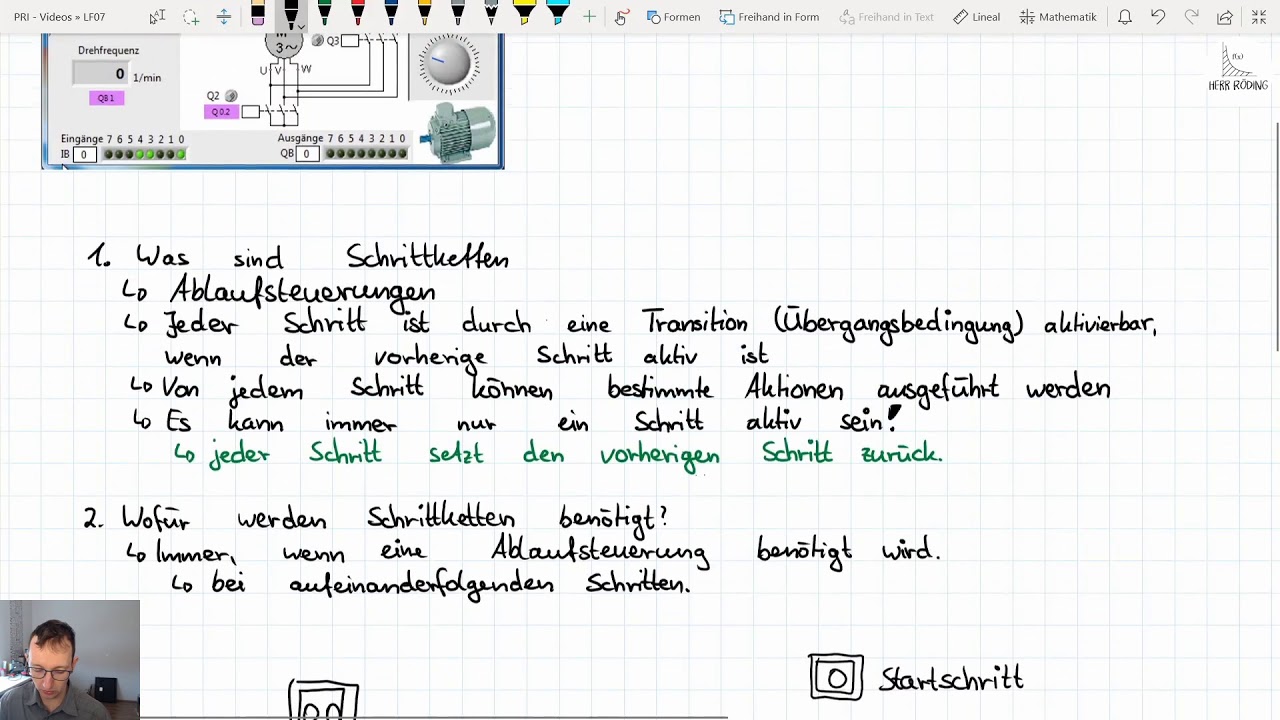 PRI - Videos » LF07
Formen
Freihand in Form
Freihand in Text
Lineal
Mathematik
f(x)
HERR RÖDING
Drehfrequenz
0
1/min
QB 1
M
3~
Q3
U V W
Q2
Q 0.2
Eingänge 7 6 5 4 3 2 1 0
IB 0
Ausgänge 7 6 5 4 3 2 1 0
QB 0
1. Was sind Schrittketten
↳ Ablaufsteuerungen
↳ Jeder Schritt ist durch eine Transition (Übergangsbedingung) aktivierbar,
wenn der vorherige Schritt aktiv ist
↳ Von jedem Schritt können bestimmte Aktionen ausgeführt werden
↳ Es kann immer nur ein Schritt aktiv sein!
↳ jeder Schritt setzt den vorherigen Schritt zurück.
2. Wofür werden Schrittketten benötigt?
↳ Immer, wenn eine Ablaufsteuerung benötigt wird.
↳ bei aufeinanderfolgenden Schritten.
0 Startschritt